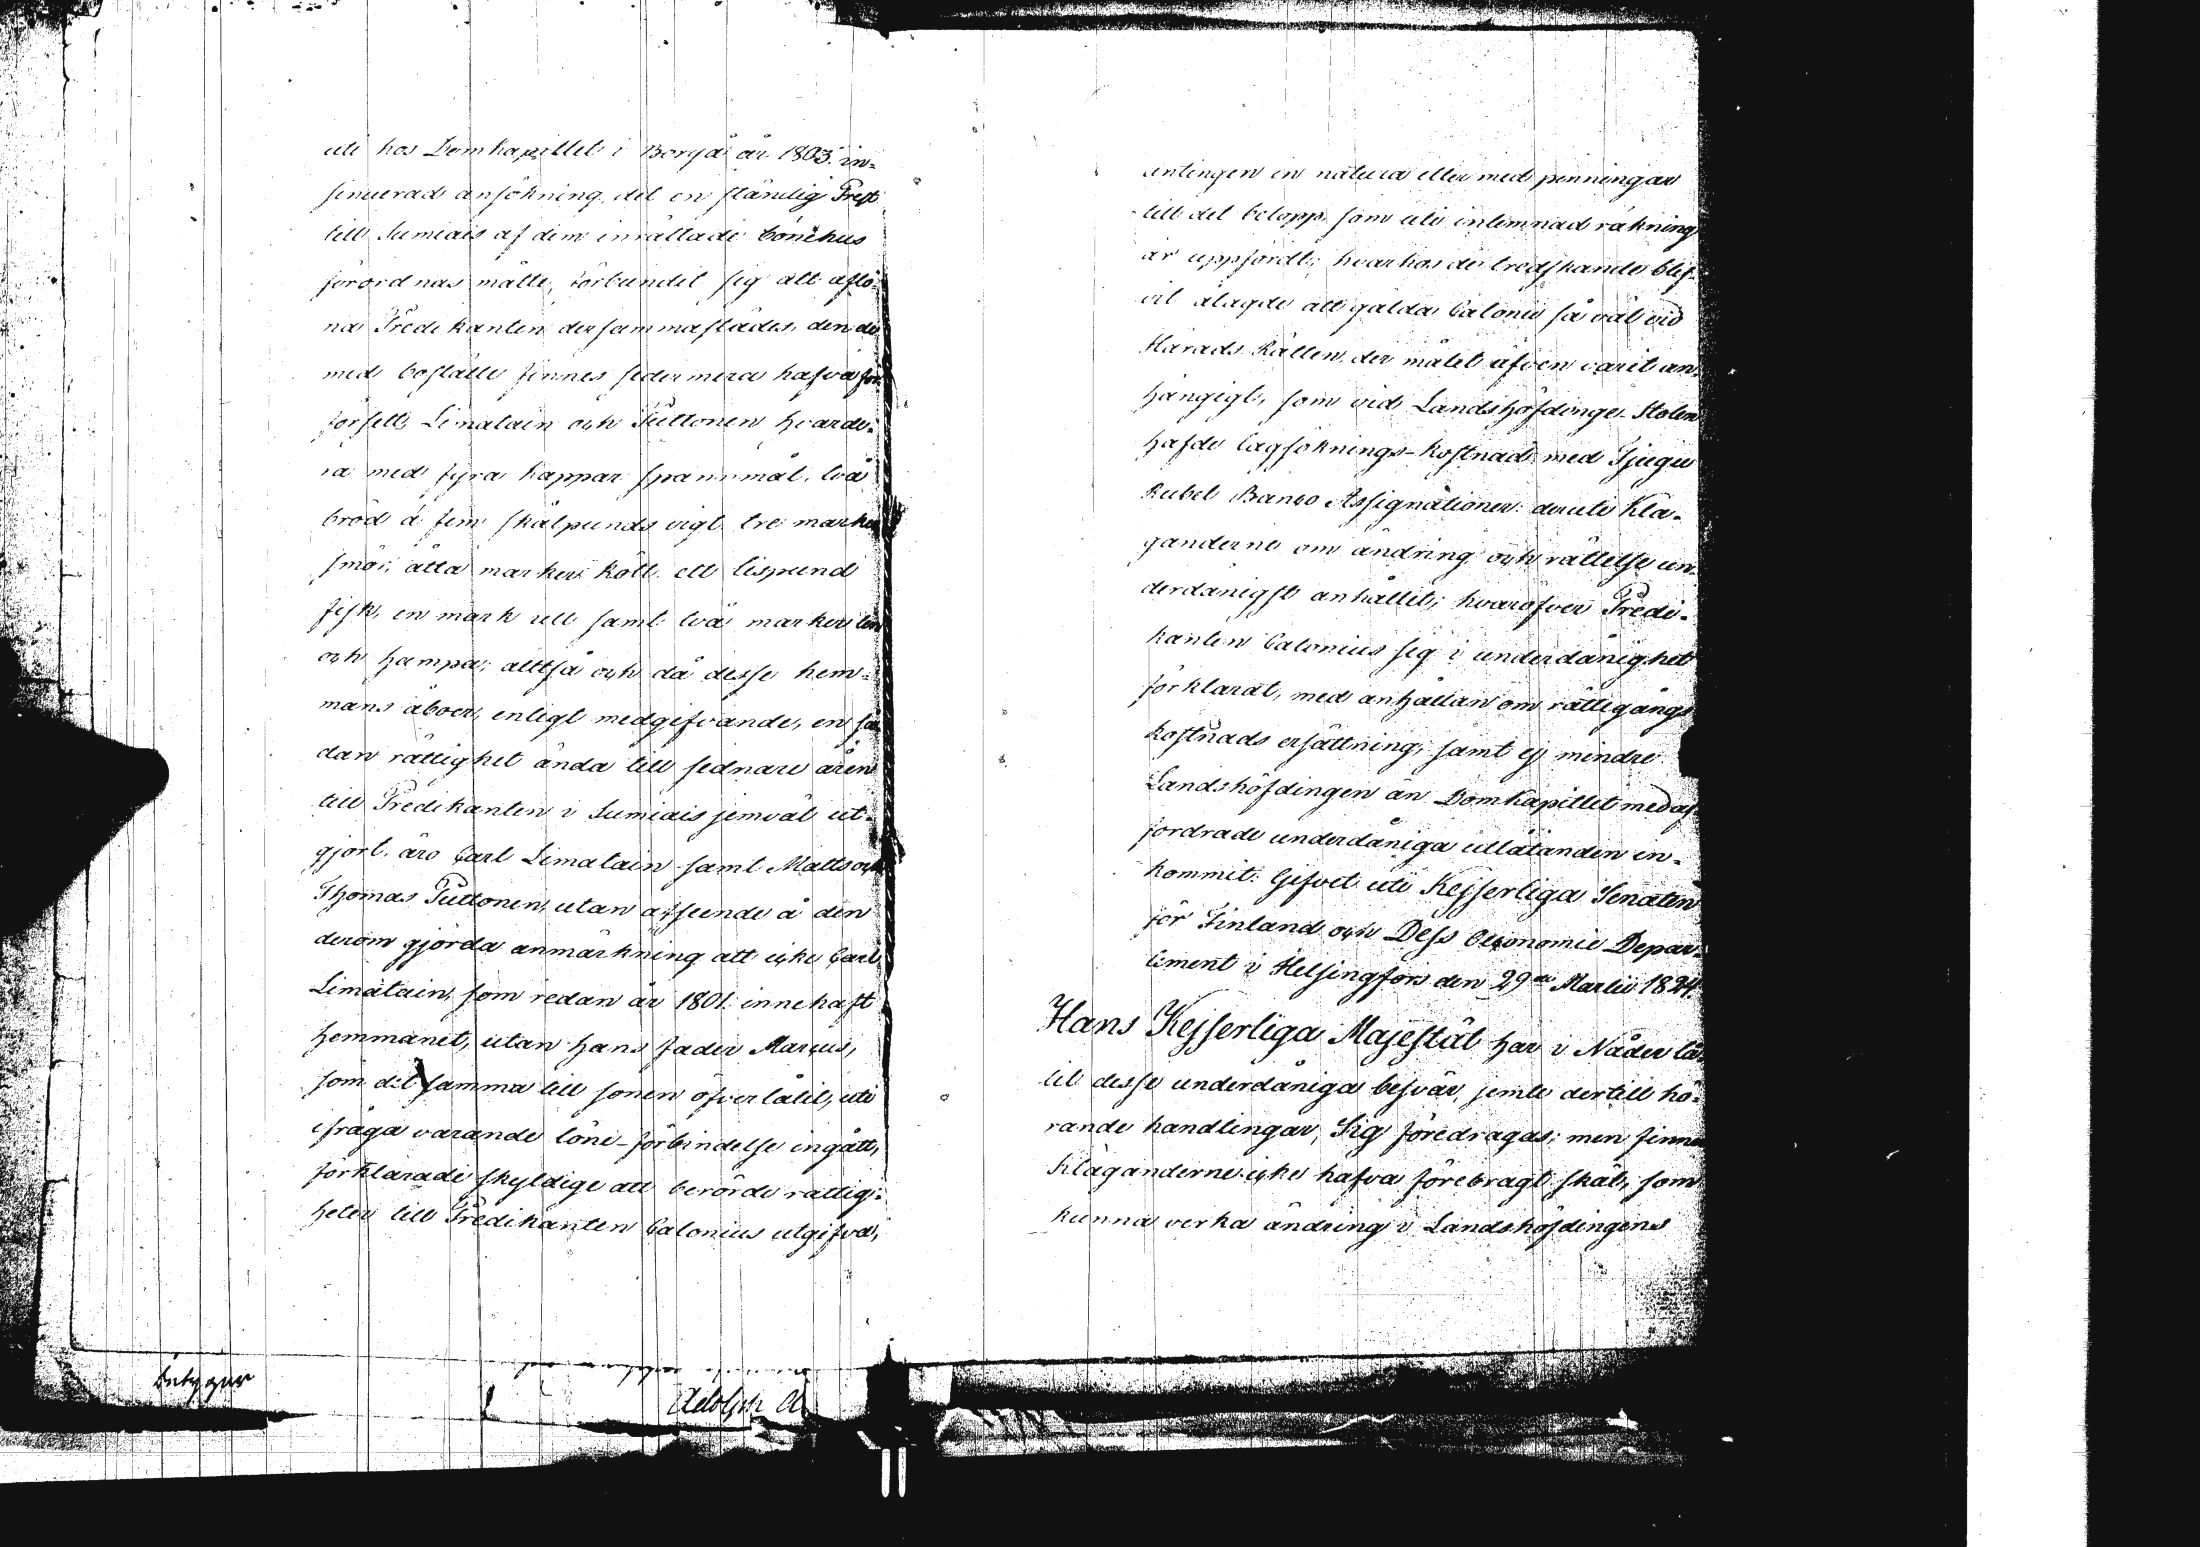 uti hos Domkapitlet i Borgå år 1803 in-
sinuerad ansökning, det en ständig Prest
till Sumiais af dem inrättade bönehus
förordnas måtte, förbundit sig att aflö-
na Predikanten dersammastädes, den de
med boställe finnes sedermera hafva för-
sett, Limatain och Puttonen hvarde-
ra med fyra kappar spannmål, två
bröd á fem skålpunds vigt tre marker
smör, åtta marker kött, ett lispund
fisk, en mark ull samt två marker lin
och hampa; alltså och då desse hem-
mans åboer, enligt medgifvande, en så-
dan rättighet ända till sednare åren
till Predikanten i Sumiais jemväl ut-
gjort, äro Carl Limatain samt Matts och
Thomas Puttonen, utan afseende å den
derom gjorda anmärkning att icke Carl
Limatain, som redan år 1801 innehaft
hemmanet, utan hans fader Marcus,
som det samma till sonen öfverlåtit, uti
ifråga varande löne-förbindelse ingått,
förklarade skyldige att berörde rättig-
heter till Predikanten Calonius utgifva,
Adolph
antingen in natura eller med penningar
till det belopp, som uti inlemnad räkning
är uppfördt; hvarhos de tredskande blif-
vit ålagde att gälda Calonii så väl vid
Härads Rätten, der målet äfven varit an-
hängigt, som vid Landshöfdinge-Stolen
hafde lagsöknings-kostnad med Tjugu
Rubel Banco Assignationer: deruti Kla-
ganderne om ändring och rättelse un-
derdånigst anhållit; hvaröfver Predi-
kanten Calonius sig i underdånighet
förklarat, med anhållan om rättegångs
kostnads ersättning, samt ej mindre
Landshöfdingen än Domkapitlet med af-
fordrade underdåniga utlåtanden in-
kommit. Gifvet uti Kejserliga Senaten
för Finland och Dess Oeconomie Depar-
tement i Helsingfors den 29de Martii 1824.
Hans Kejserliga Majestät har i Nåder lå-
tit desse underdåniga besvär, jemte dertill hö-
rande handlingar, Sig föredragas; men finner
Klaganderne icke hafva förebragt skäl, som
kunna verka ändring i Landshöfdingens